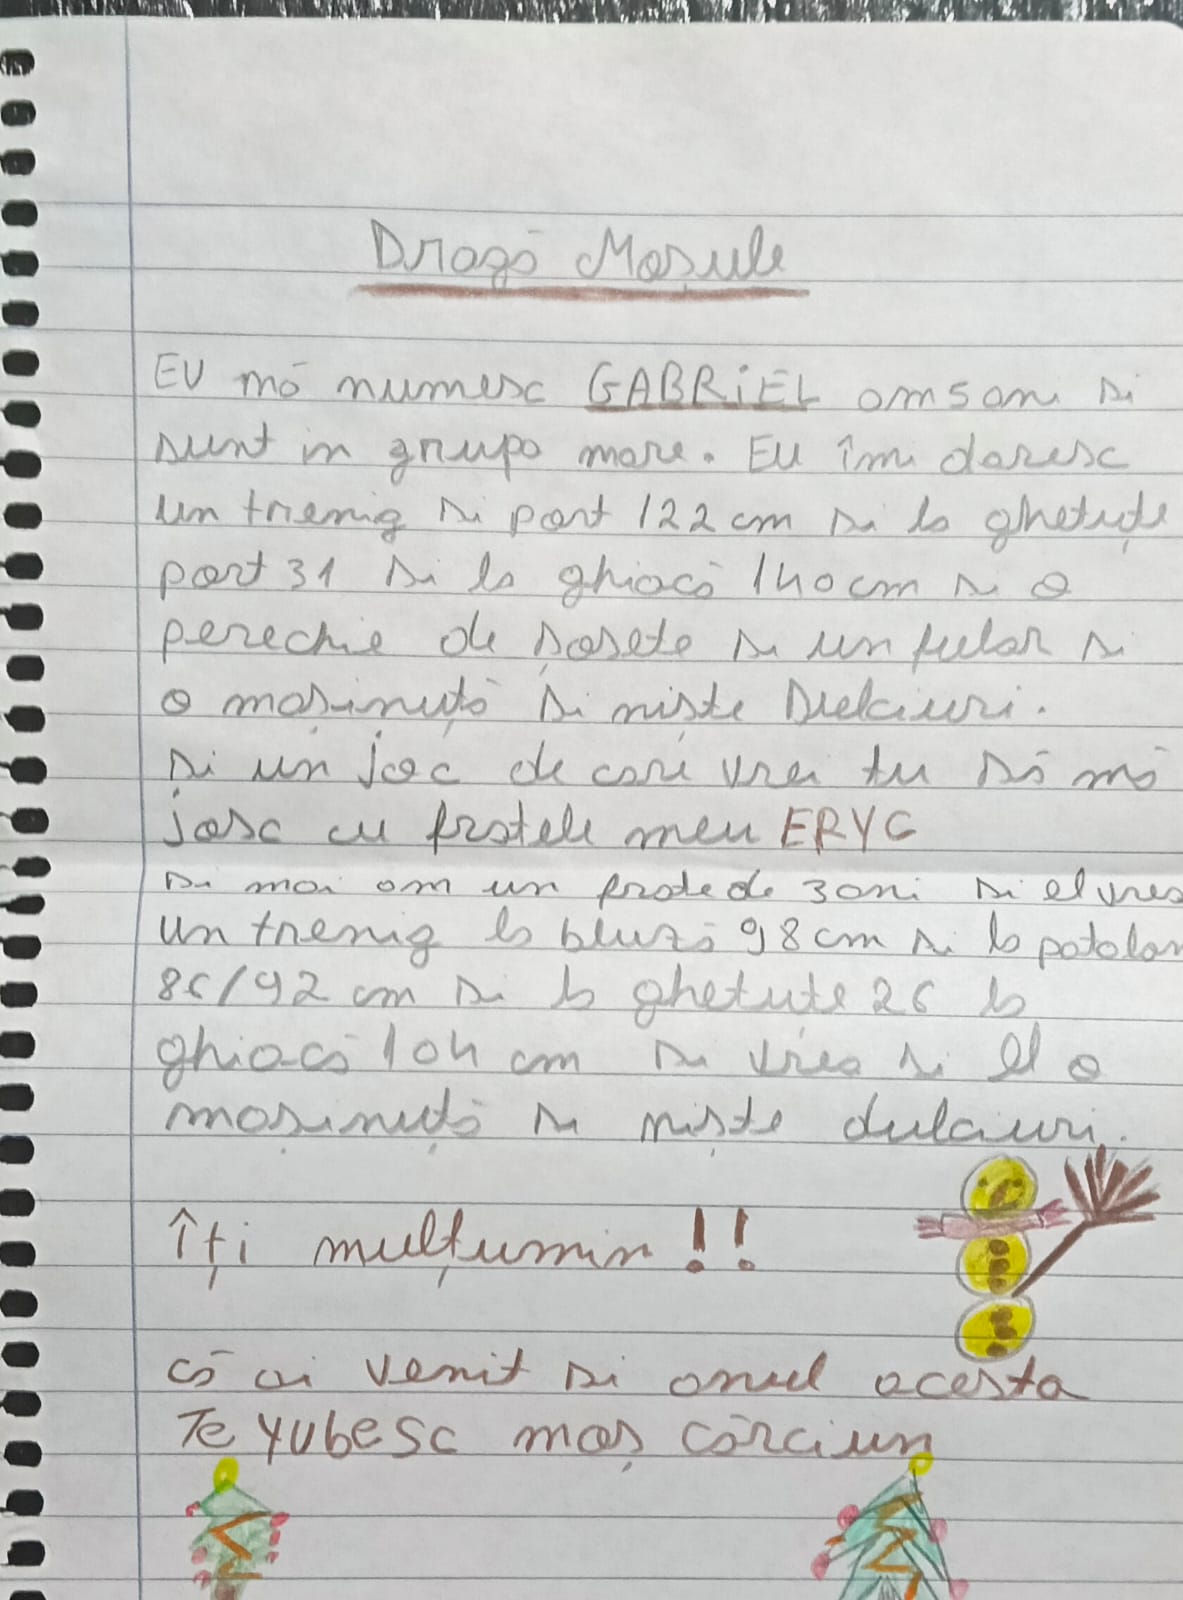 Dragă Moșule
EU mă numesc GABRIEL am 5 ani si
sunt in grupa mare. Eu îmi doresc
un trenig si port 122 cm si la ghetuțe
port 31 si la ghiacă 140 cm si o
perechie de șosete si un fular si
o mașinuță si niște dulciuri.
si un joc de cari vrei tu să mă
josc cu fratele meu ERYC
si mai am un frate de 3 ani si el vrea
un trenig la bluză 98 cm si la patalan
86/92 cm si la ghetute 26 la
ghiacă 104 cm si vrea si el o
mașinuță si niște dulciuri.
Îți mulțumin !!
că ai venit si anul acesta
Te yubesc moș cărciun